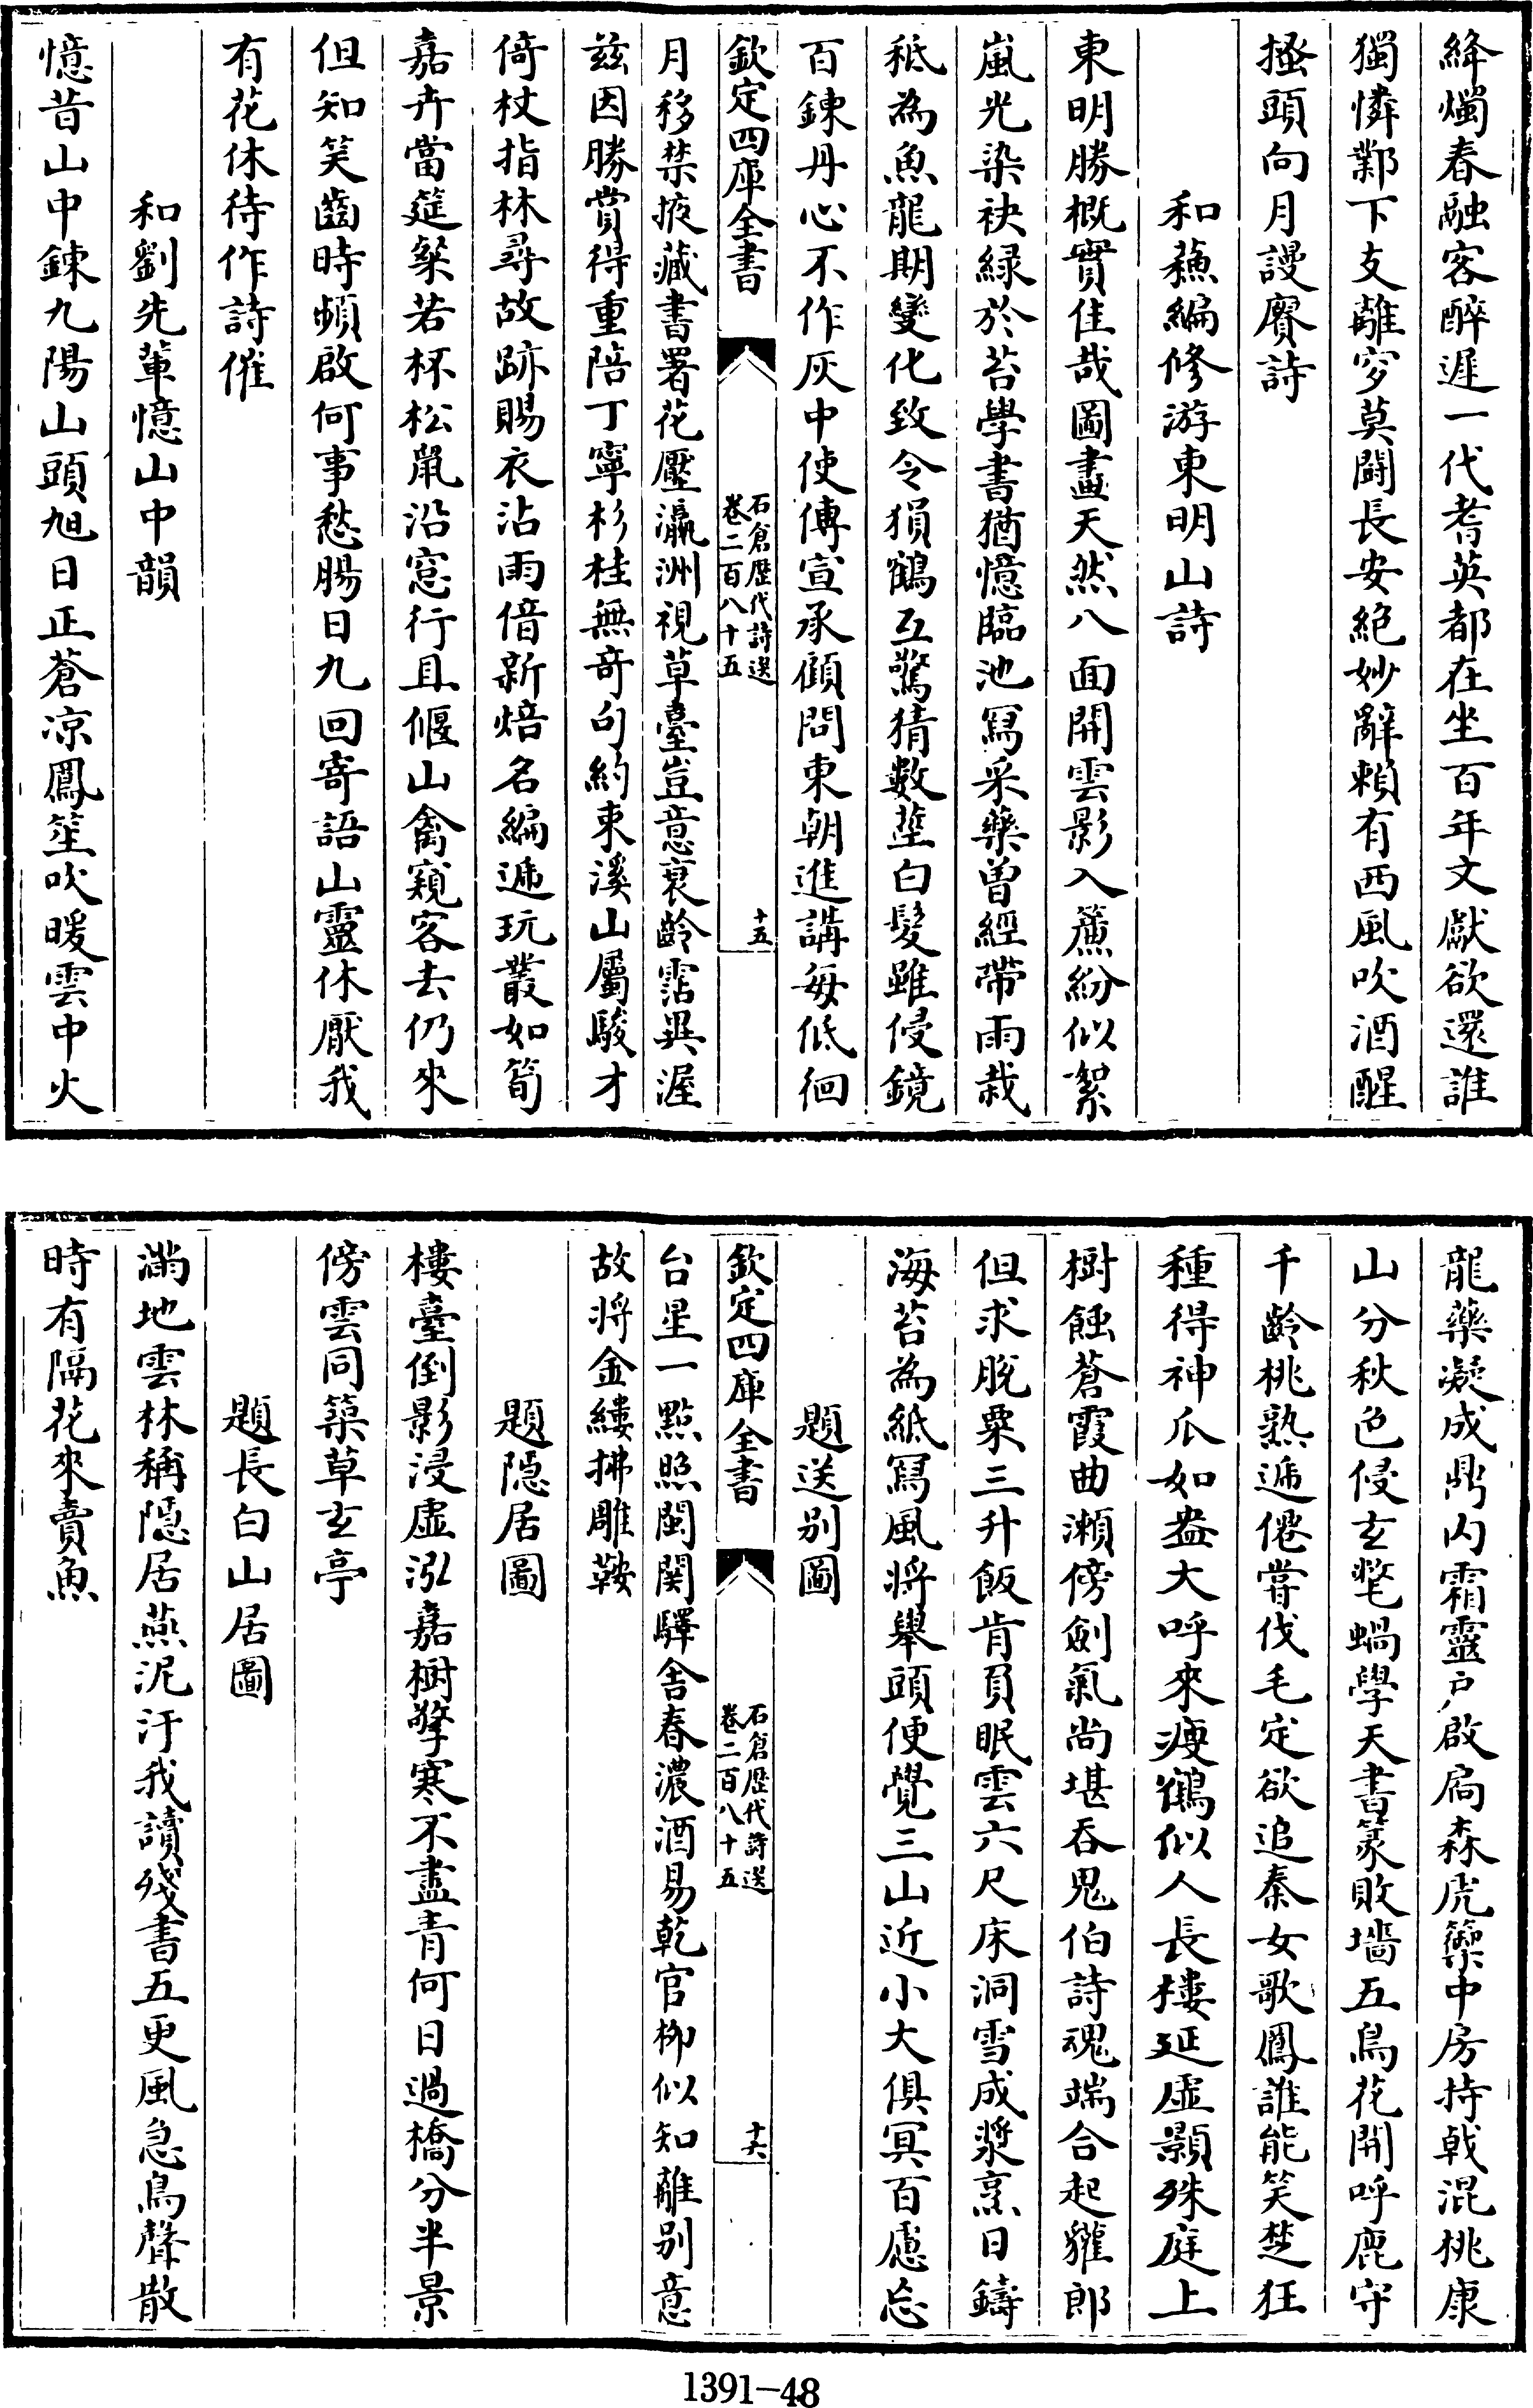 絳燭春融客醉遲一代耆英都在坐百年文獻欲還誰
獨憐鄴下支離穸莫鬪長安絕妙辭賴有西風吹酒醒
搔頭向月謾賡詩
和蘇編修游東明山詩
東明勝概實佳哉圖畫天然八面開雲影入簾紛似絮
嵐光染袂緑於苔學書猶憶臨池冩采藥曽經帶雨栽
秪為魚龍期變化致令猿鶴互驚猜數莖白髮雖侵鏡
百鍊丹心不作灰中使傳宣承顧問東朝進講每低徊
欽定四庫全書
石倉歷代詩選
卷二百八十五
十五
月移禁掖藏書署花壓瀛洲視草臺豈意衰齡霑異渥
兹因勝賞得重陪丁寧杉桂無奇句約束溪山屬駿才
倚杖指林尋故跡賜衣沾雨借新焙名編遞玩叢如筍
嘉卉當筵粲若杯松鼠沿窓行且偃山禽窺客去仍來
但知笑齒時頻啟何事愁腸日九回寄語山靈休厭我
有花休待作詩催
和劉先軰憶山中韻
憶昔山中鍊九陽山頭旭日正蒼凉鳳笙吹暖雲中火
龍藥凝成鼎内霜靈户啟扃森虎籞中房持戟混桃康
山分秋色侵玄鬓蝸學天書篆敗墻五鳥花開呼鹿守
千齡桃熟遞僊嘗伐毛定欲追秦女歌鳳誰能笑楚狂
種得神爪如盎大呼來瘦鶴似人長樓延虛顥殊庭上
樹蝕蒼霞曲瀬傍劍氣尚堪吞鬼伯詩魂端合起貛郎
但求脫粟三升飯肯負眠雲六尺床洞雪成漿烹日鑄
海苔為紙冩風將舉頭便覺三山近小大俱冥百慮忘
題送别圖
欽定四庫全書
石倉歷代詩選
卷二百八十五
十六
台星一點照閩關驛舍春濃酒易乾官栁似知離别意
故将金縷拂雕鞍
題隠居圖
樓臺倒影浸虛泓嘉樹擎寒不盡青何日過橋分半景
傍雲同築草玄亭
題長白山居圖
滿地雲林稱隠居燕泥汙我讀殘書五更風急鳥聲散
時有隔花來賣魚
1391-48